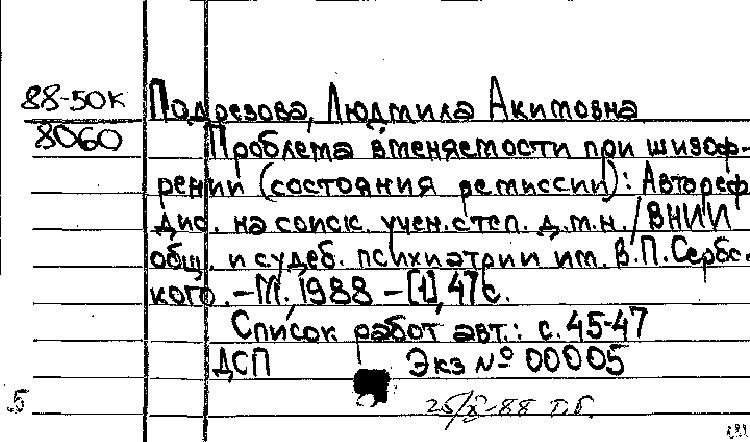 88-50К
8060
Подрезова, Людмила Акимовна
Проблема вменяемости при шизоф-
рении (состояния ремиссии): Автореф
дис. на соиск. учен. степ. д.м.н. / ВНИИ
общ. и судеб. психиатрии им. В.П. Сербс-
кого. – М., 1988 – [1], 47 с.
Список работ авт.: с. 45-47
ДСП Экз № 00005
5